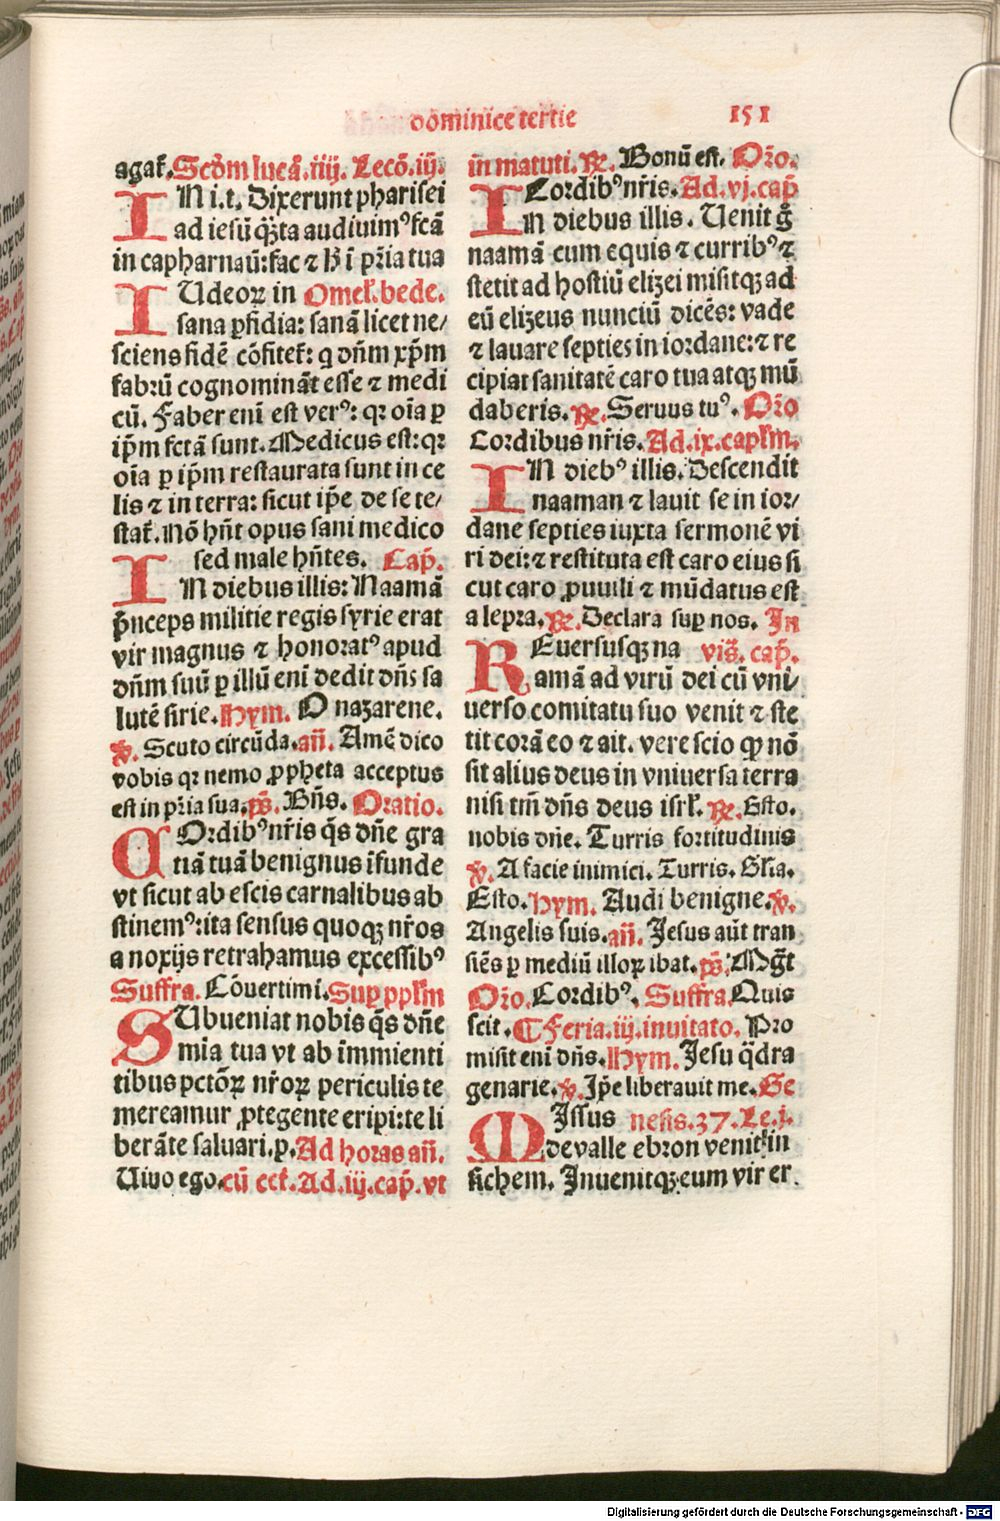 dōminice tertie 151
agat̄. Scd̄m lucā. iiij. Lecō. iij.
IN i.t. Dixerunt pharisei
ad iesū q̄ȝta audiuim⁹ fcā
in capharnaū: fac ⁊ h̄ ī pr̄ia tua
IUdeoꝝ in Omel̄. bede.
sana ꝑfidia: sanā licet ne/
sciens fidē cōfitet̄: q dn̄m xp̄m
fabrū cognomināt esse ⁊ medi
cū. Faber enī est ver⁹: qꝛ oīa ꝑ
ip̄m fctā sunt. Medicus est: qꝛ
oīa ꝑ ip̄m restaurata sunt in ce
lis ⁊ in terra: sicut ip̄e de se te/
stat̄. Nō hn̄t opus sani medico
sed male hn̄tes. Cap̄.
IN diebus illis: Naamā
p̄nceps militie regis syrie erat
vir magnus ⁊ honorat⁹ apud
dn̄m suū ꝑ illū enī dedit dn̄s sa
lutē sirie. Hym. O nazarene.
℣. Scuto circūda. an̄. Amē dico
vobis qꝛ nemo ꝓpheta acceptus
est in pr̄ia sua. ps̄. Bn̄s. Oratio.
COrdib⁹ nr̄is q̄s dn̄e gra
tiā tuā benignus īfunde
vt sicut ab escis carnalibus ab
stinem⁹: ita sensus quoqꝫ nr̄os
a noxijs retrahamus excessib⁹
Suffra. Cōuertimi. Suꝑ pplm̄
SUbueniat nobis q̄s dn̄e
mia tua vt ab īmmienti
tibus pctōꝝ nr̄oꝝ periculis te
mereamur ꝓtegente eripi: te li
berāte saluari. ꝑ. Ad horas an̄.
Uiuo ego. cū cet̄. Ad. iij. cap̄. vt
īn matuti. ℟. Bonū est. Or̄o.
Cordib⁹ nr̄is. Ad. vj. cap̄
IN diebus illis. Uenit g̊
naamā cum equis ⁊ currib⁹ ⁊
stetit ad hostiū elizei misitqꝫ ad
eū elizeus nunciū dicēs: vade
⁊ lauare septies in iordane: ⁊ re
cipiat sanitatē caro tua atqꝫ mū
daberis. ℟. Seruus tu⁹. Or̄o
Cordibus nr̄is. Ad. ix. caplm̄.
IN dieb⁹ illis. Descendit
naaman ⁊ lauit se in ior/
dane septies iuxta sermonē vi
ri dei: ⁊ restituta est caro eius si
cut caro ꝑuuili ⁊ mūdatus est
a lepra. ℟. Declara suꝑ nos. In
REuersusqꝫ na vis̄. cap̄.
amā ad virū dei cū vni/
uerso comitatu suo venit ⁊ ste
tit corā eo ⁊ ait. vere scio ꝙ nō
sit alius deus in vniuersa terra
nisi tm̄ dn̄s deus isrl̄. ℟. Esto.
nobis dn̄e. Turris fortitudinis
℣. A facie inimici. Turris. Glīa.
Esto. Hym. Audi benigne. ℣.
Angelis suis. an̄. Jesus aūt tran
siēs ꝑ mediū illoꝝ ibat. ps̄. Mg̅t
Or̄o. Cordib⁹. Suffra. Quis
scit. ¶ Feria. iij. inuitato. Pro
misit enī dn̄s. Hym. Jesu q̄dra
genarie. ℣. Ip̄e liberauit me. Ge
MIssus nesis. 37. Le. j.
de valle ebron venit in
sichem. Inuenitqꝫ eum vir er
Digitalisierung gefördert durch die Deutsche Forschungsgemeinschaft - DFG